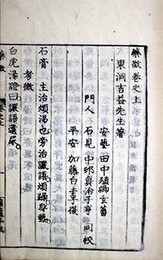 藥徵卷之上
東洞吉益先生著
安藝 田中殖卿玄蕃
門人 石見 中邨貞治子亨 同校
平安 加藤白圭子復
石膏 主治煩渴也旁治譫語煩躁身熱
考徵
白虎湯證曰譫語遺尿